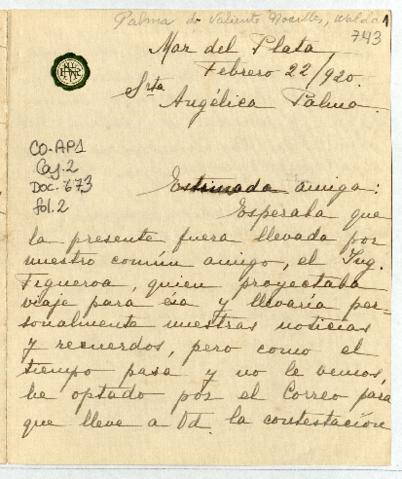 Palma de Valiente Noailles, Walda
743
Mar del Plata
Febrero 22/920.
Srta
Angélica Palma.
CO-AP1
Caj. 2
Doc. 673
fol. 2
Estimada amiga:
Esperaba que
la presente fuera llevada por
nuestro común amigo, el Ing.
Figueroa, quien proyectaba
viaje para esa y llevaría per-
sonalmente nuestras noticias
y recuerdos, pero como el
tiempo pasa y no le vemos,
he optado por el Correo para
que lleve a Ud. la contestación